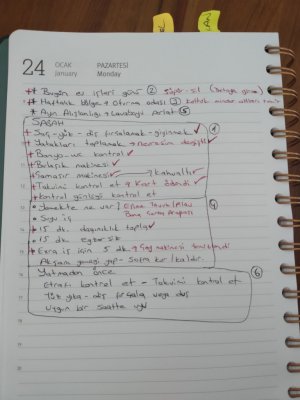 24 OCAK January PAZARTESİ Monday
* Bugün ev işleri günü ② Süpür-sil
* Haftalık bölge → Oturma odası ③ koltuk minder altları
* Ayın Alışkanlığı → Lavaboyu Parlat ⑤
SABAH
* Saç-yüz-diş fırçalamak-giyinmek ✓ ①
* Yatakları toplamak → nevresim değişti ✓
* Banyo-wc kontrol ✓
* Bulaşık makinesi ✓
* Çamaşır makinesi ✓ kahvaltı
* Takvimi kontrol et → Kart ödendi ✓
* Kontrol günlüğü kontrol et
* Yemekte ne var? ④
* Suyu iç
* 15 dk. dağınıklık topla ✓
* 15 dk. egzersiz
* Esra iş için 5 dk. → Saç makinesi temizlendi
Akşam yemeği yap - sofra kur/kaldır.
Yatmadan önce ⑥
Etrafı kontrol et - Takvimi kontrol et
diş fırçala veya duş
Uygun bir saatte uyu